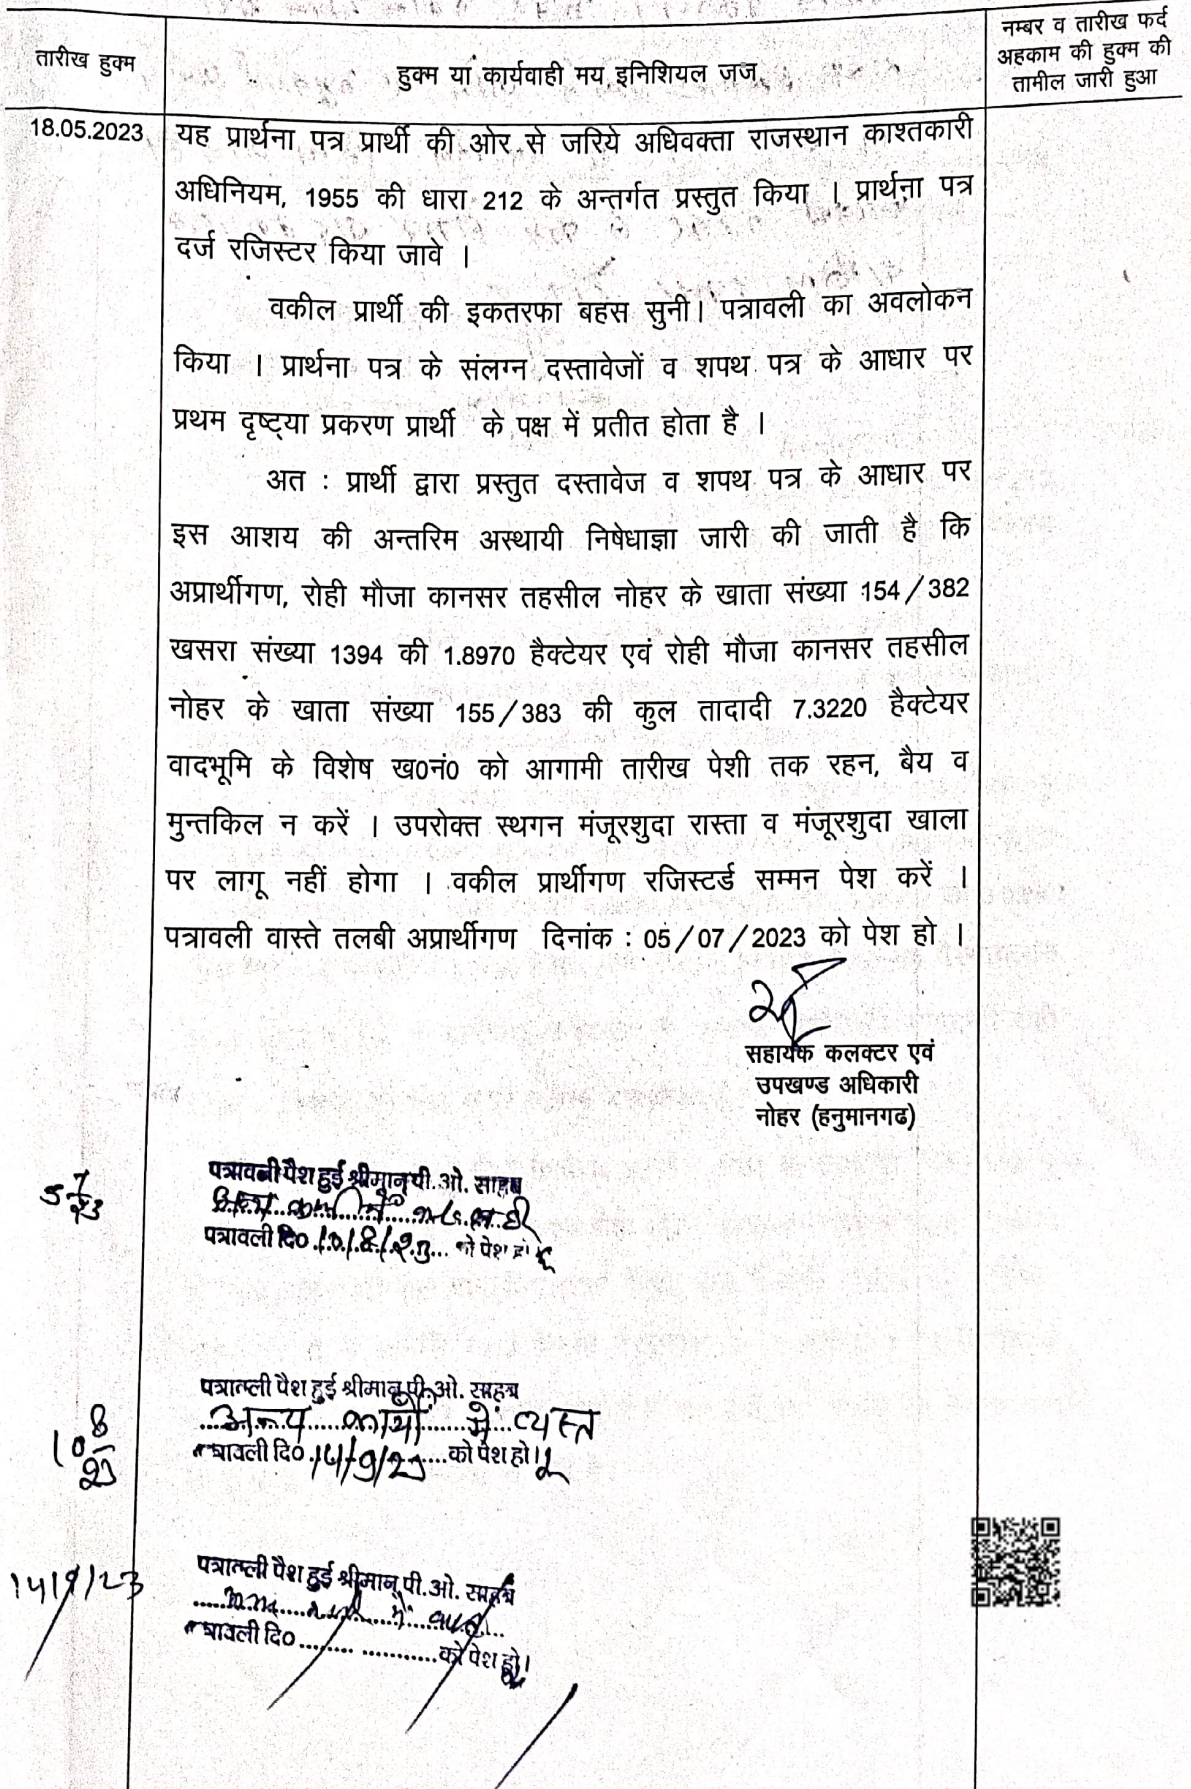 तारीख हुक्म
हुक्म या कार्यवाही मय इनिशियल जज
नम्बर व तारीख फर्द
अहकाम की हुक्म की
तामील जारी हुआ
18.05.2023
यह प्रार्थना पत्र प्रार्थी की ओर से जरिये अधिवक्ता राजस्थान काश्तकारी
अधिनियम, 1955 की धारा 212 के अन्तर्गत प्रस्तुत किया । प्रार्थना पत्र
दर्ज रजिस्टर किया जावे ।
वकील प्रार्थी की इकतरफा बहस सुनी। पत्रावली का अवलोकन
किया । प्रार्थना पत्र के संलग्न दस्तावेजों व शपथ पत्र के आधार पर
प्रथम दृष्ट्या प्रकरण प्रार्थी के पक्ष में प्रतीत होता है ।
अत : प्रार्थी द्वारा प्रस्तुत दस्तावेज व शपथ पत्र के आधार पर
इस आशय की अन्तरिम अस्थायी निषेधाज्ञा जारी की जाती है कि
अप्रार्थीगण, रोही मौजा कानसर तहसील नोहर के खाता संख्या 154/382
खसरा संख्या 1394 की 1.8970 हैक्टेयर एवं रोही मौजा कानसर तहसील
नोहर के खाता संख्या 155/383 की कुल तादादी 7.3220 हैक्टेयर
वादभूमि के विशेष ख0नं0 को आगामी तारीख पेशी तक रहन, बैय व
मुन्तकिल न करें । उपरोक्त स्थगन मंजूरशुदा रास्ता व मंजूरशुदा खाला
पर लागू नहीं होगा । वकील प्रार्थीगण रजिस्टर्ड सम्मन पेश करें ।
पत्रावली वास्ते तलबी अप्रार्थीगण दिनांक : 05/07/2023 को पेश हो ।
सहायक कलक्टर एवं
उपखण्ड अधिकारी
नोहर (हनुमानगढ)
5 7/23
पत्रावली पैश हुई श्रीमान् पी. ओ. साहब
पत्रावली दि० 10/8/23 को पेश हो
10 8/23
पत्रावली पैश हुई श्रीमान् पी. ओ. साहब
अन्य कार्यों में व्यस्त
पत्रावली दि० 14/9/23 को पेश हो।
14/9/23
पत्रावली पैश हुई श्रीमान् पी. ओ. साहब
पत्रावली दि० ................... को पेश हो।